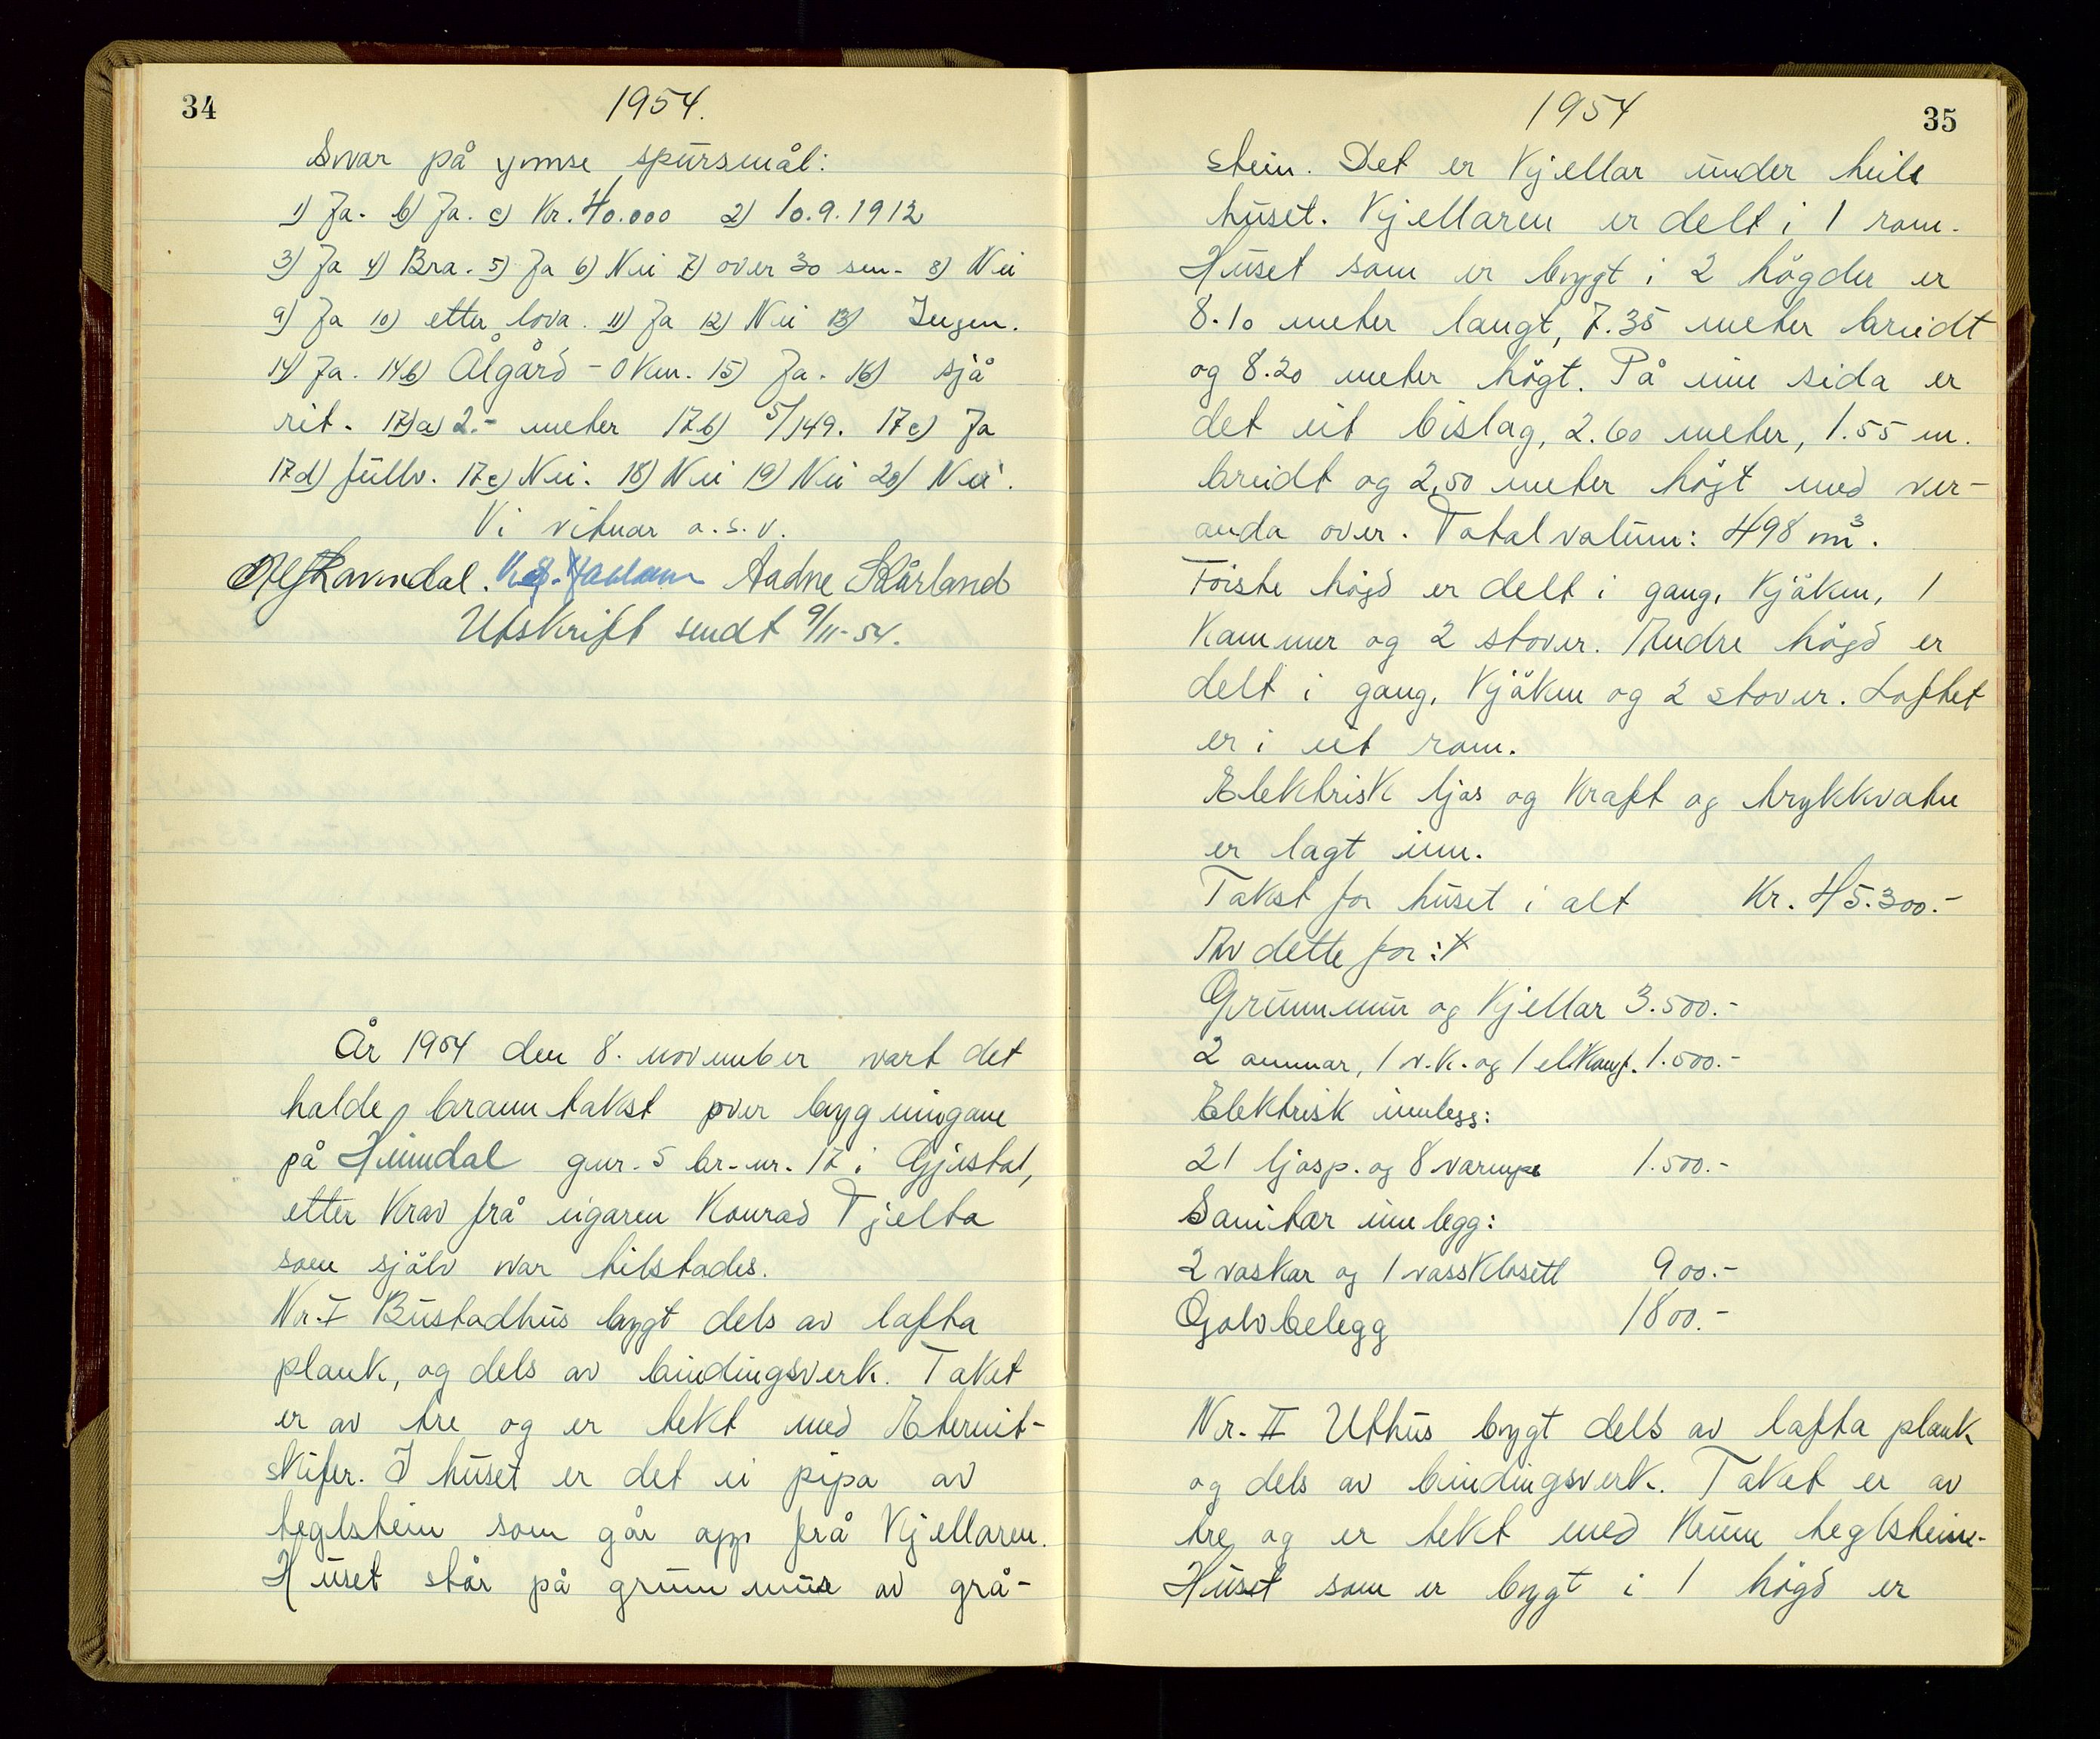 34
1954.
Svar på ymse spursmål:
1) Ja. b) Ja. c) Kr. 40.000 2) 10.9.1912
3) Ja 4) Bra. 5) Ja 6) Nei 7) over 30 sm. 8) Nei
9) Ja 10) etter lova. 11) Ja 12) Nei 13) Ingen.
14) Ja. 14b) Ålgård - 0 km. 15) Ja. 16) sjå
rit. 17)a) 2.- meter 17b) 5/149. 17c) Ja
17d) fullv. 17e) Nei. 18) Nei 19) Nei 20) Nei.
Vi vitnar o.s.v.
Alf Ravndal. Aadne Skårland
Utskrift sendt 9/11-54.
År 1954 den 8. november vart det
halde branntakst over bygningane
på Heimdal gnr. 5 br.nr. 17 i Gjestal,
etter krav frå eigaren Konrad Tjelta
som sjølv var tilstades.
Nr. I Bustadhus bygt dels av lafta
plank, og dels av bindingsverk. Taket
er av tre og er tekt med Eternit-
skifer. I huset er det ei pipa av
teglstein som går opp frå kjellaren.
Huset står på grunnmur av grå-
1954
35
stein. Det er kjellar under heile
huset. Kjellaren er delt i 1 rom.
Huset som er bygt i 2 högder er
8.10 meter langt, 7.35 meter breidt
og 8.20 meter högt. På eine sida er
det eit bislag, 2.60 meter, 1.55 m.
breidt og 2,50 meter högt med ver-
anda over. Totalvolum: 498 m³.
Föiste högd er delt i gang, kjöken, 1
kammer og 2 stover. Andre högd er
delt i gang, kjöken og 2 stover. Loftet
er i eit rom.
Elektrisk ljos og kraft og trykkvatn
er lagt inn.
Takst for huset i alt Kr. 45.300.-
Av dette for:
Grunnmur og kjellar 3.500.-
2 omnar, 1 v.k. og 1 el.komf. 1.500.-
Elektrisk innlegg:
21 ljosp. og 8 varmep 1.500.-
Sanitær innlegg:
2 vaskar og 1 vassklosett 900.-
Golvbelegg 1800.-
Nr. II Uthus bygt dels av lafta plank
og dels av bindingsverk. Taket er av
tre og er tekt med krum teglstein.
Huset som er bygt i 1 högd er